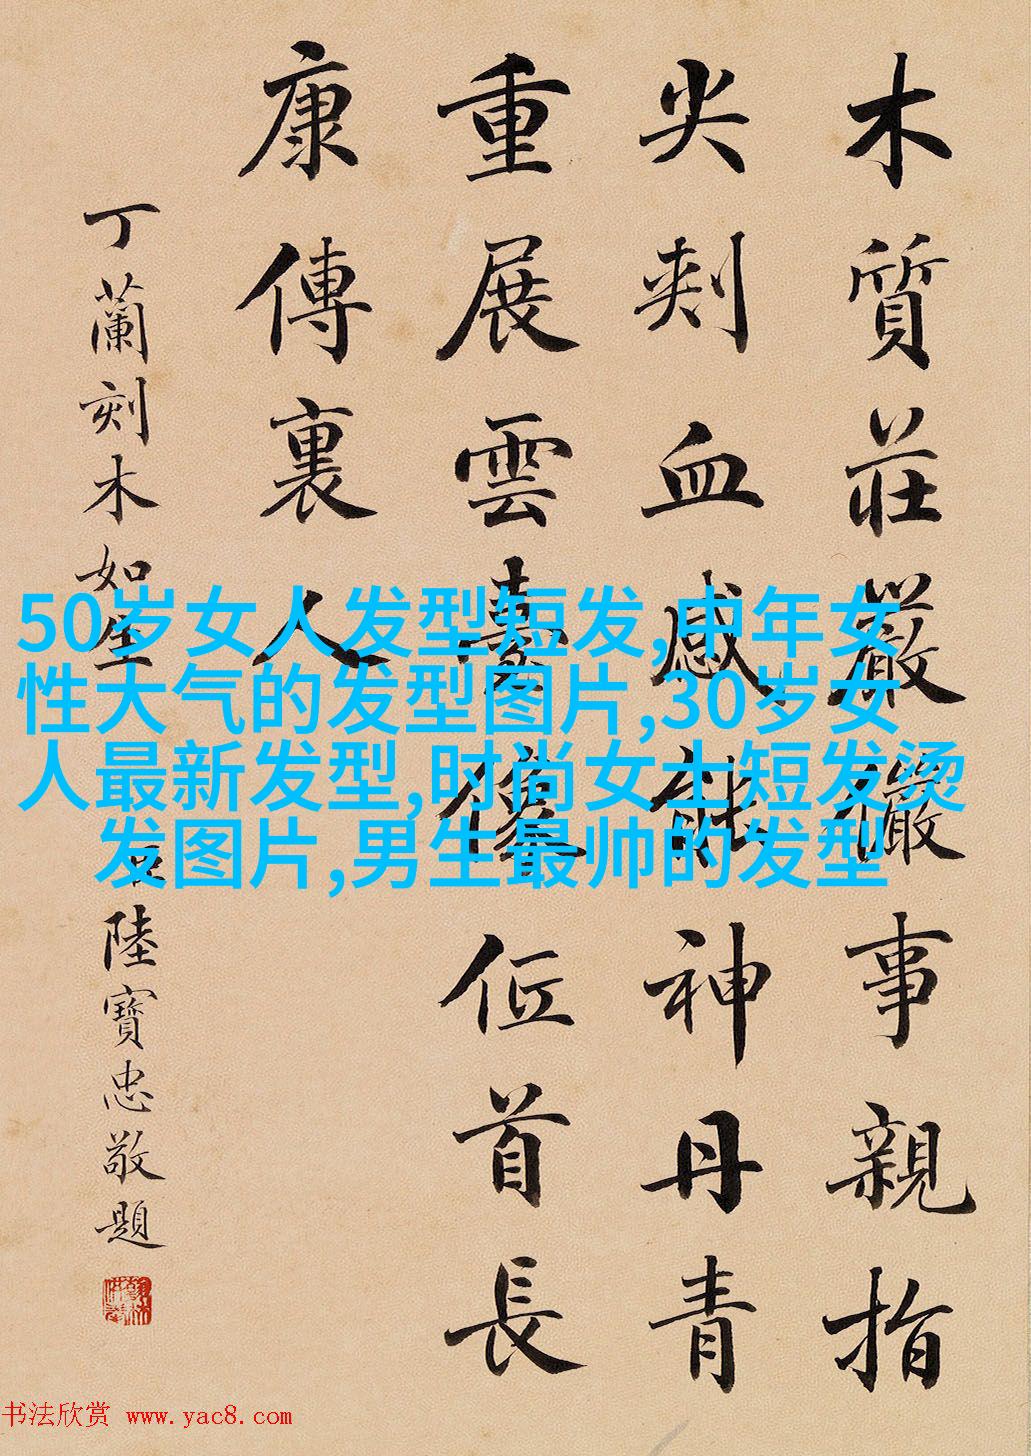 木質莊嚴儼事親指
尖刾血感能神丹青
重展雲臺像伍首長
康傳裏人
丁蘭刻木如生
陸寶忠敬題
50岁女人发型短发,中年女
性大气的发型图片,30岁女
人最新发型,时尚女士短发烫
发图片,男生最帅的发型
书法欣赏 www.yac8.com